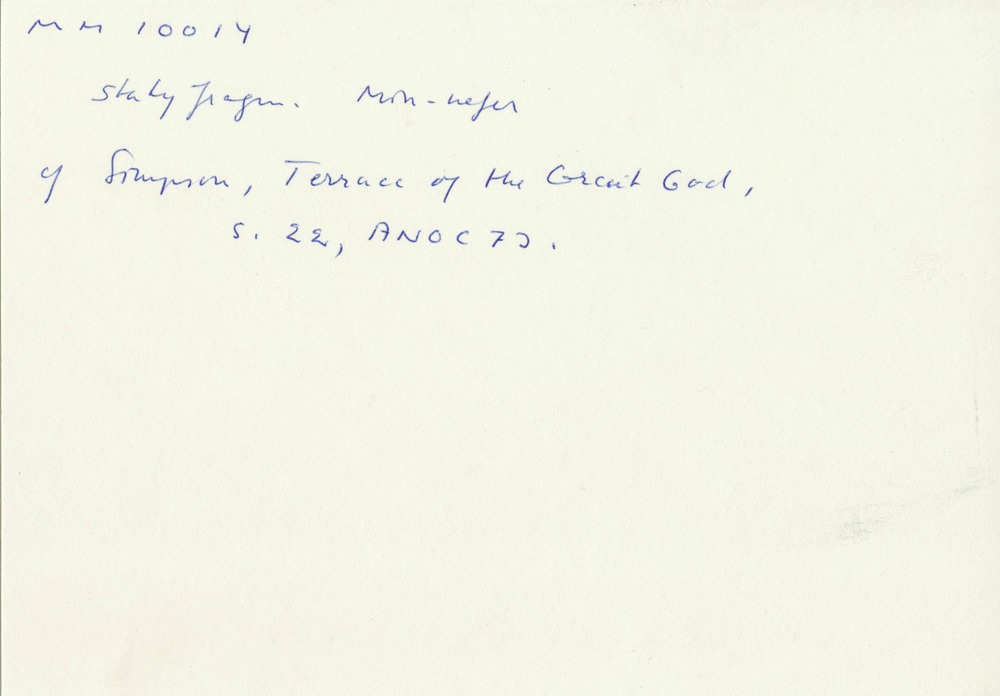 MM 10014
staty fragm. Min-nefer
cf Simpson, Terrace of the Great God,
S. 22, ANOC 73.